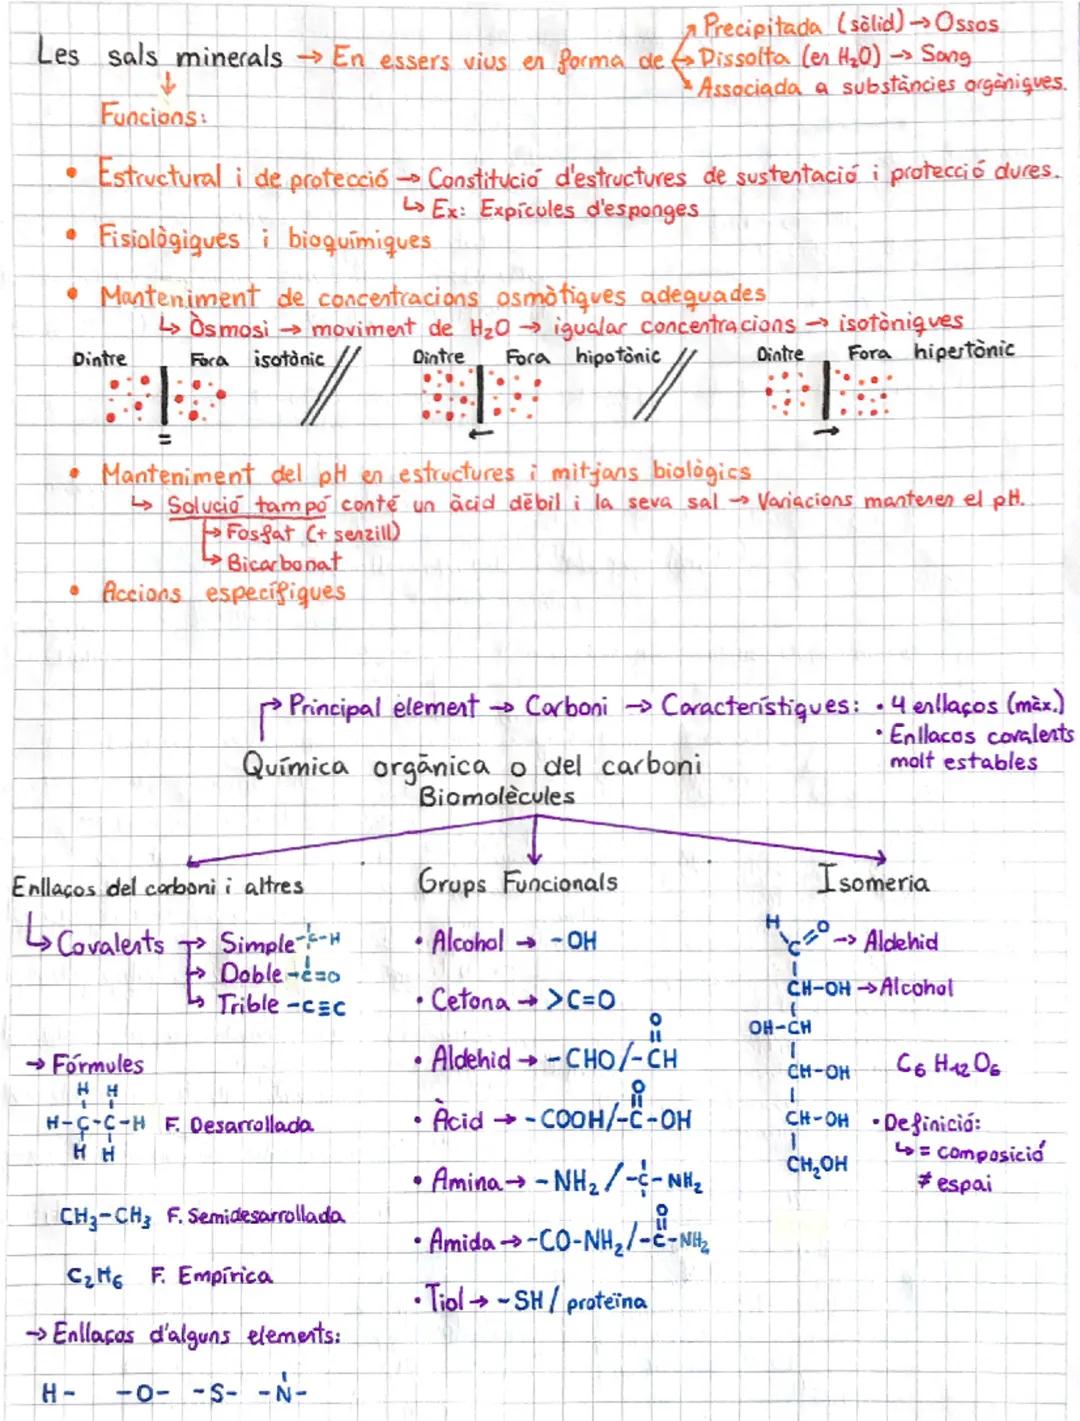 Precipitada (sòlid) → Ossos
Les sals minerals → En essers vius en forma de → Dissolta (en H₂O) → Sang
Associada a substàncies orgàniques.
Funcions:
• Estructural i de protecció → Constitució d'estructures de sustentació i protecció dures.
↳ Ex: Expícules d'esponges
• Fisiològiques i bioquímiques
• Manteniment de concentracions osmòtiques adequades
↳ Òsmosi → moviment de H₂O → igualar concentracions → isotòniques
Dintre Fora isotònic // Dintre Fora hipotònic // Dintre Fora hipertònic
= ← →
• Manteniment del pH en estructures i mitjans biològics
↳ Solució tampó conté un àcid dèbil i la seva sal → Variacions mantenen el pH.
↳ Fosfat (+ senzill)
↳ Bicarbonat
• Accions específiques
Principal element → Carboni → Característiques: • 4 enllaços (màx.)
• Enllacos covalents
molt estables
Química orgànica o del carboni
Biomolècules
Enllaços del carboni i altres
↳ Covalents → Simple -C-H
→ Doble -C=O
↳ Trible -C≡C
→ Fórmules
H H
H-C-C-H F. Desarrollada
H H
CH₃-CH₃ F. Semidesarrollada
C₂H₆ F. Empírica
→ Enllaços d'alguns elements:
H- -O- -S- -N-
Grups Funcionals
• Alcohol → -OH
• Cetona → >C=O
O
• Aldehid → -CHO/-CH
O
• Àcid → -COOH/-C-OH
• Amina → -NH₂ /-C-NH₂
O
• Amida → -CO-NH₂/-C-NH₂
• Tiol → -SH / proteïna
Isomeria
H
C=O → Aldehid
CH-OH → Alcohol
OH-CH
CH-OH C₆H₁₂O₆
CH-OH • Definició:
CH₂OH ↳ = composició
≠ espai